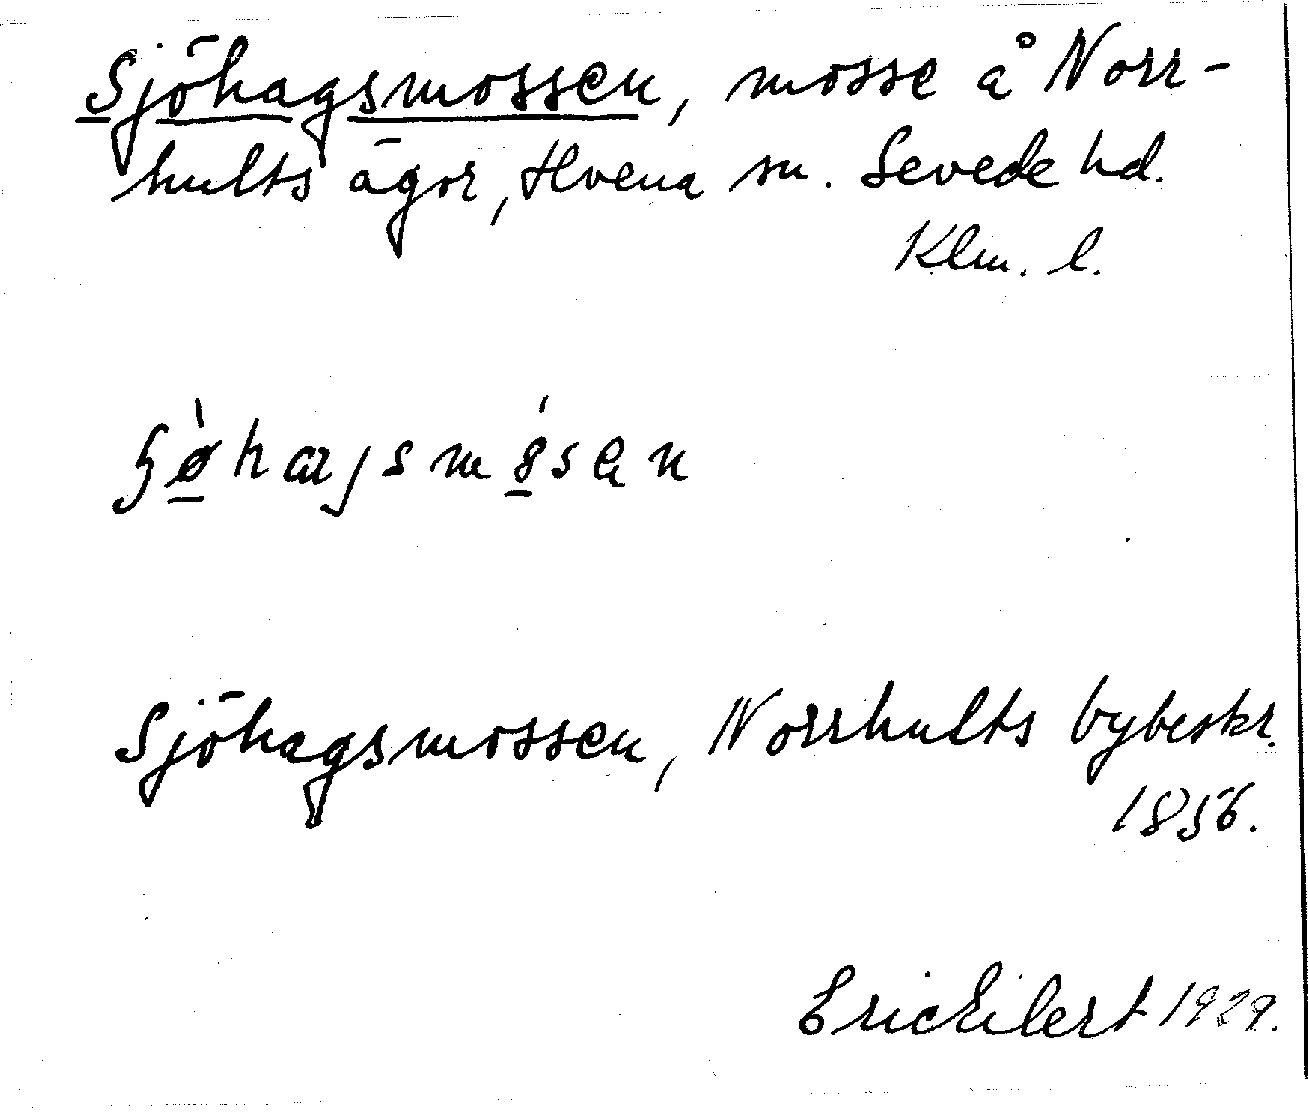 Sjöhagsmossen, mosse å Norr-
hults ägor, Hvena sn. Sevede hd.
Klm. l.
Sjöhagsmossen, Norrhults bybeskr.
1856.
Eric Eilert 1929.